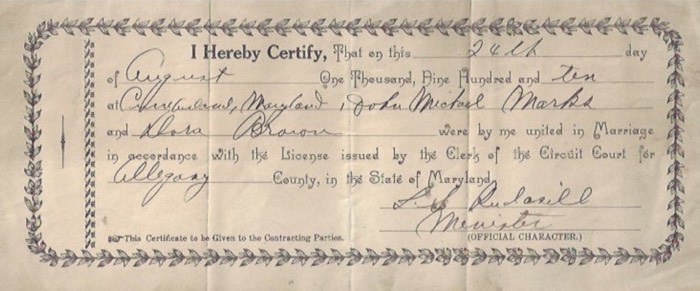 I Hereby Certify, That on this 24th day
of August One Thousand, Nine Hundred and ten
at Cumberland, Maryland, John Michael Marks
and Dora Brown were by me united in Marriage
in accordance with the License issued by the Clerk of the Circuit Court for
Allegany County, in the State of Maryland
Rudasill
Minister
This Certificate to be Given to the Contracting Parties. (OFFICIAL CHARACTER.)